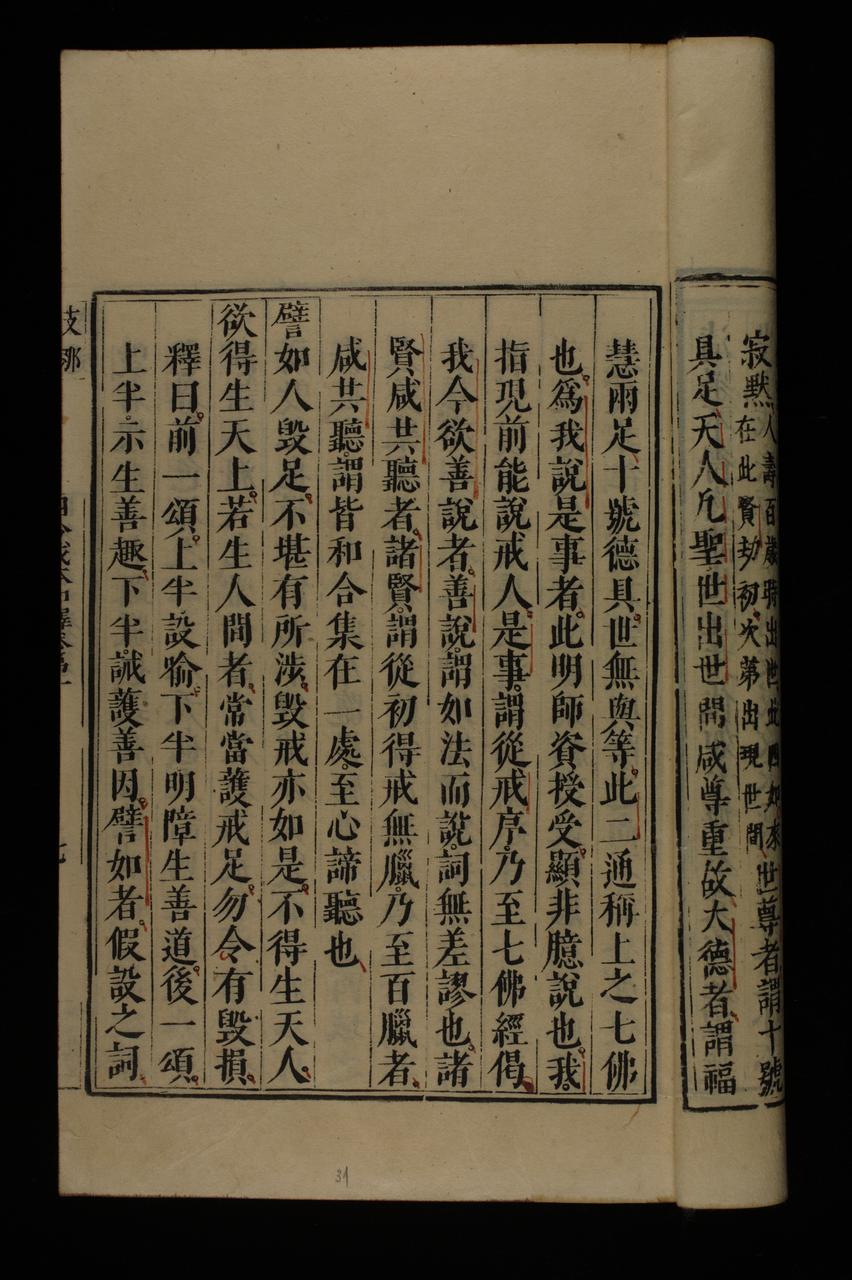 寂默人壽百歲時出世此四如來
在此賢劫初次第出現世間世尊者謂十號
具足天人凡聖世出世間咸尊重故大德者謂福
慧兩足十號德具世無與等此二通稱上之七佛
也爲我說是事者此明師資授受顯非臆說也我
指現前能說戒人是事謂從戒序乃至七佛經偈
我今欲善說者善說謂如法而說詞無差謬也諸
賢咸共聽者諸賢謂從初得戒無臘乃至百臘者
咸共聽謂皆和合集在一處至心諦聽也
譬如人毀足不堪有所涉毀戒亦如是不得生天人
欲得生天上若生人間者常當護戒足勿令有毀損
釋曰前一頌上半設喻下半明障生善道後一頌
上半示生善趣下半誡護善因譬如者假設之詞
支那
七
31